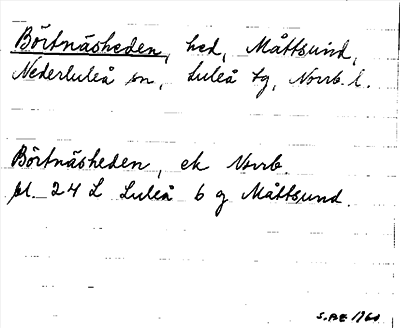 Börtnäsheden, hed, Måttsund,
Nederluleå sn, Luleå tg, Norrb. l.
Börtnäsheden, ek Norrb.
bl. 24 L Luleå 6 g Måttsund.
S.BE 1960